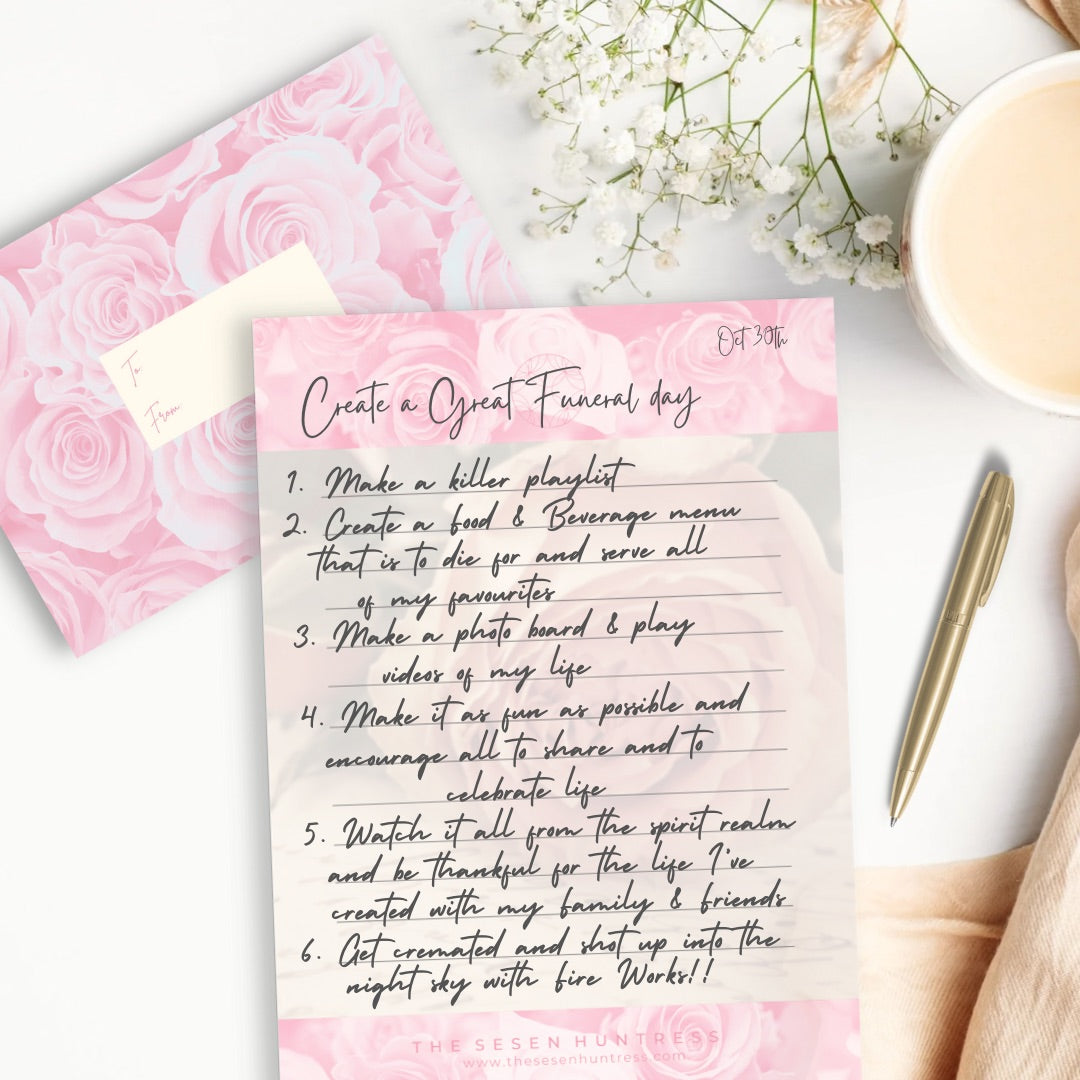 To:
From:
Oct 30th
Create a Great Funeral day
1. Make a killer playlist
2. Create a food & Beverage menu
that is to die for and serve all
of my favourites
3. Make a photo board & play
videos of my life
4. Make it as fun as possible and
encourage all to share and to
celebrate life
5. Watch it all from the spirit realm
and be thankful for the life I've
created with my family & friends
6. Get cremated and shot up into the
night sky with fire Works!!
THE SESEN HUNTRESS
www.thesesenhuntress.com